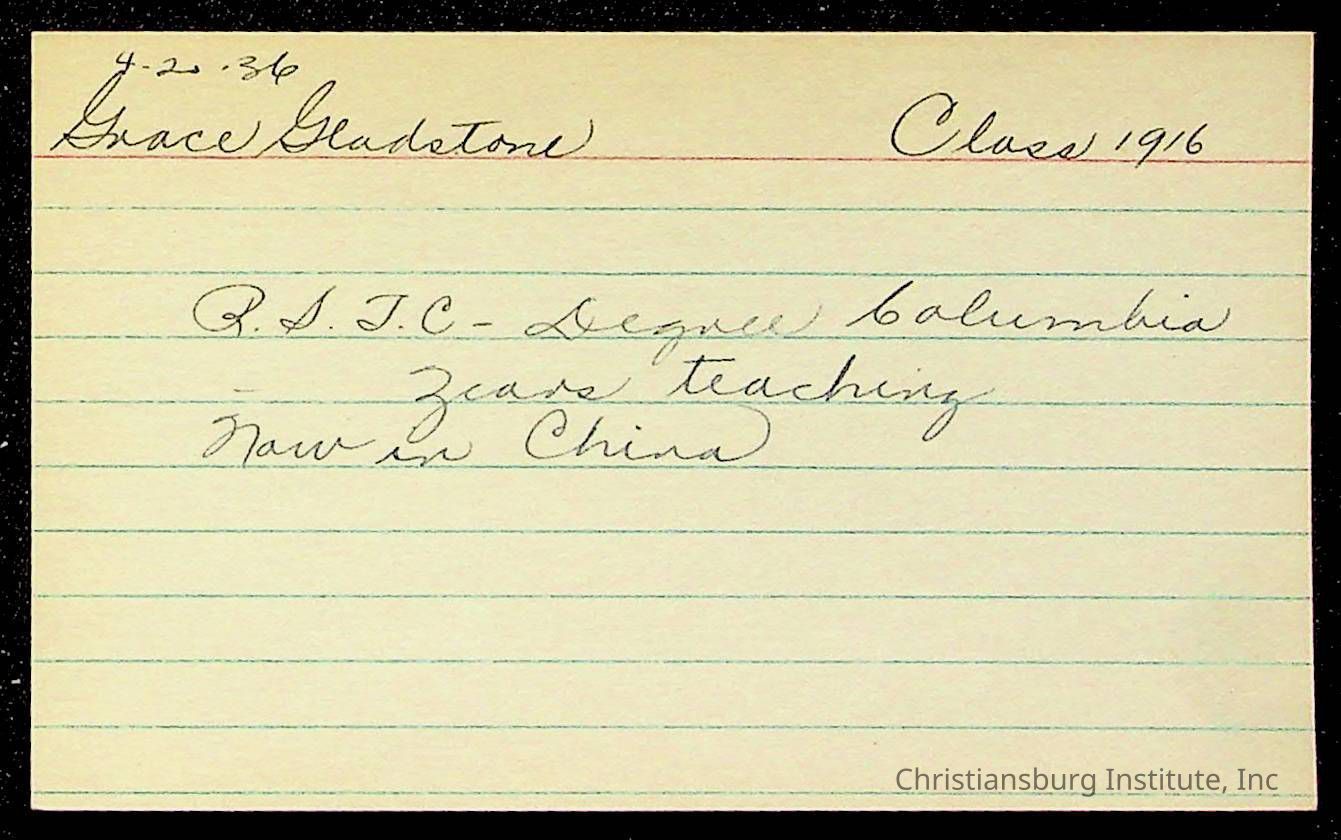 4-20-36
Grace Gladstone Class 1916
R.S.T.C- Degree Columbia
- Years teaching
Now in China
Christiansburg Institute, Inc